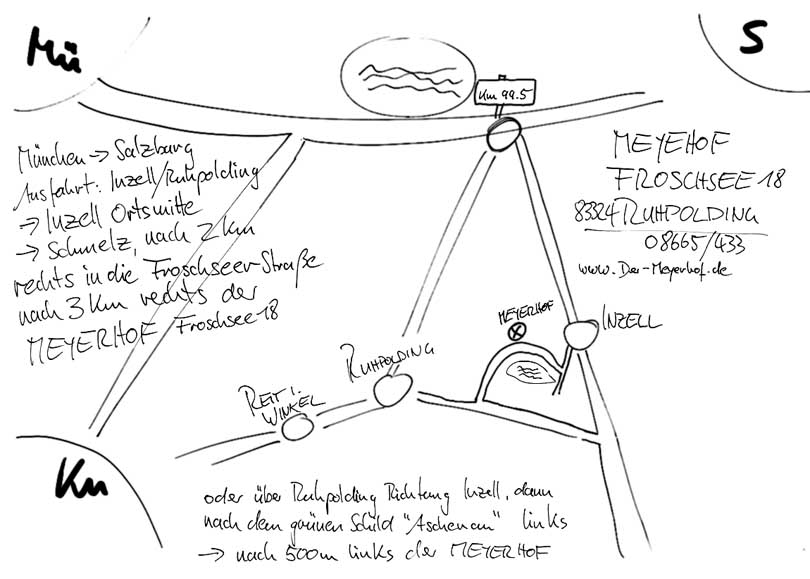 Mü
S
Km 99.5
München → Salzburg
Ausfahrt: Inzell/Ruhpolding
→ Inzell Ortsmitte
→ Schmelz, nach 2 km
rechts in die Froschseer-Straße
nach 3 Km rechts der
MEYERHOF Froschsee 18
MEYEHOF
FROSCHSEE 18
83324 RUHPOLDING
08665/433
www.Der-Meyerhof.de
MEYERHOF
INZELL
RUHPOLDING
REIT I.
WINKEL
Ku
oder über Ruhpolding Richtung Inzell, dann
nach dem grünen Schild "Aschenau" links
→ nach 500m links der MEYERHOF